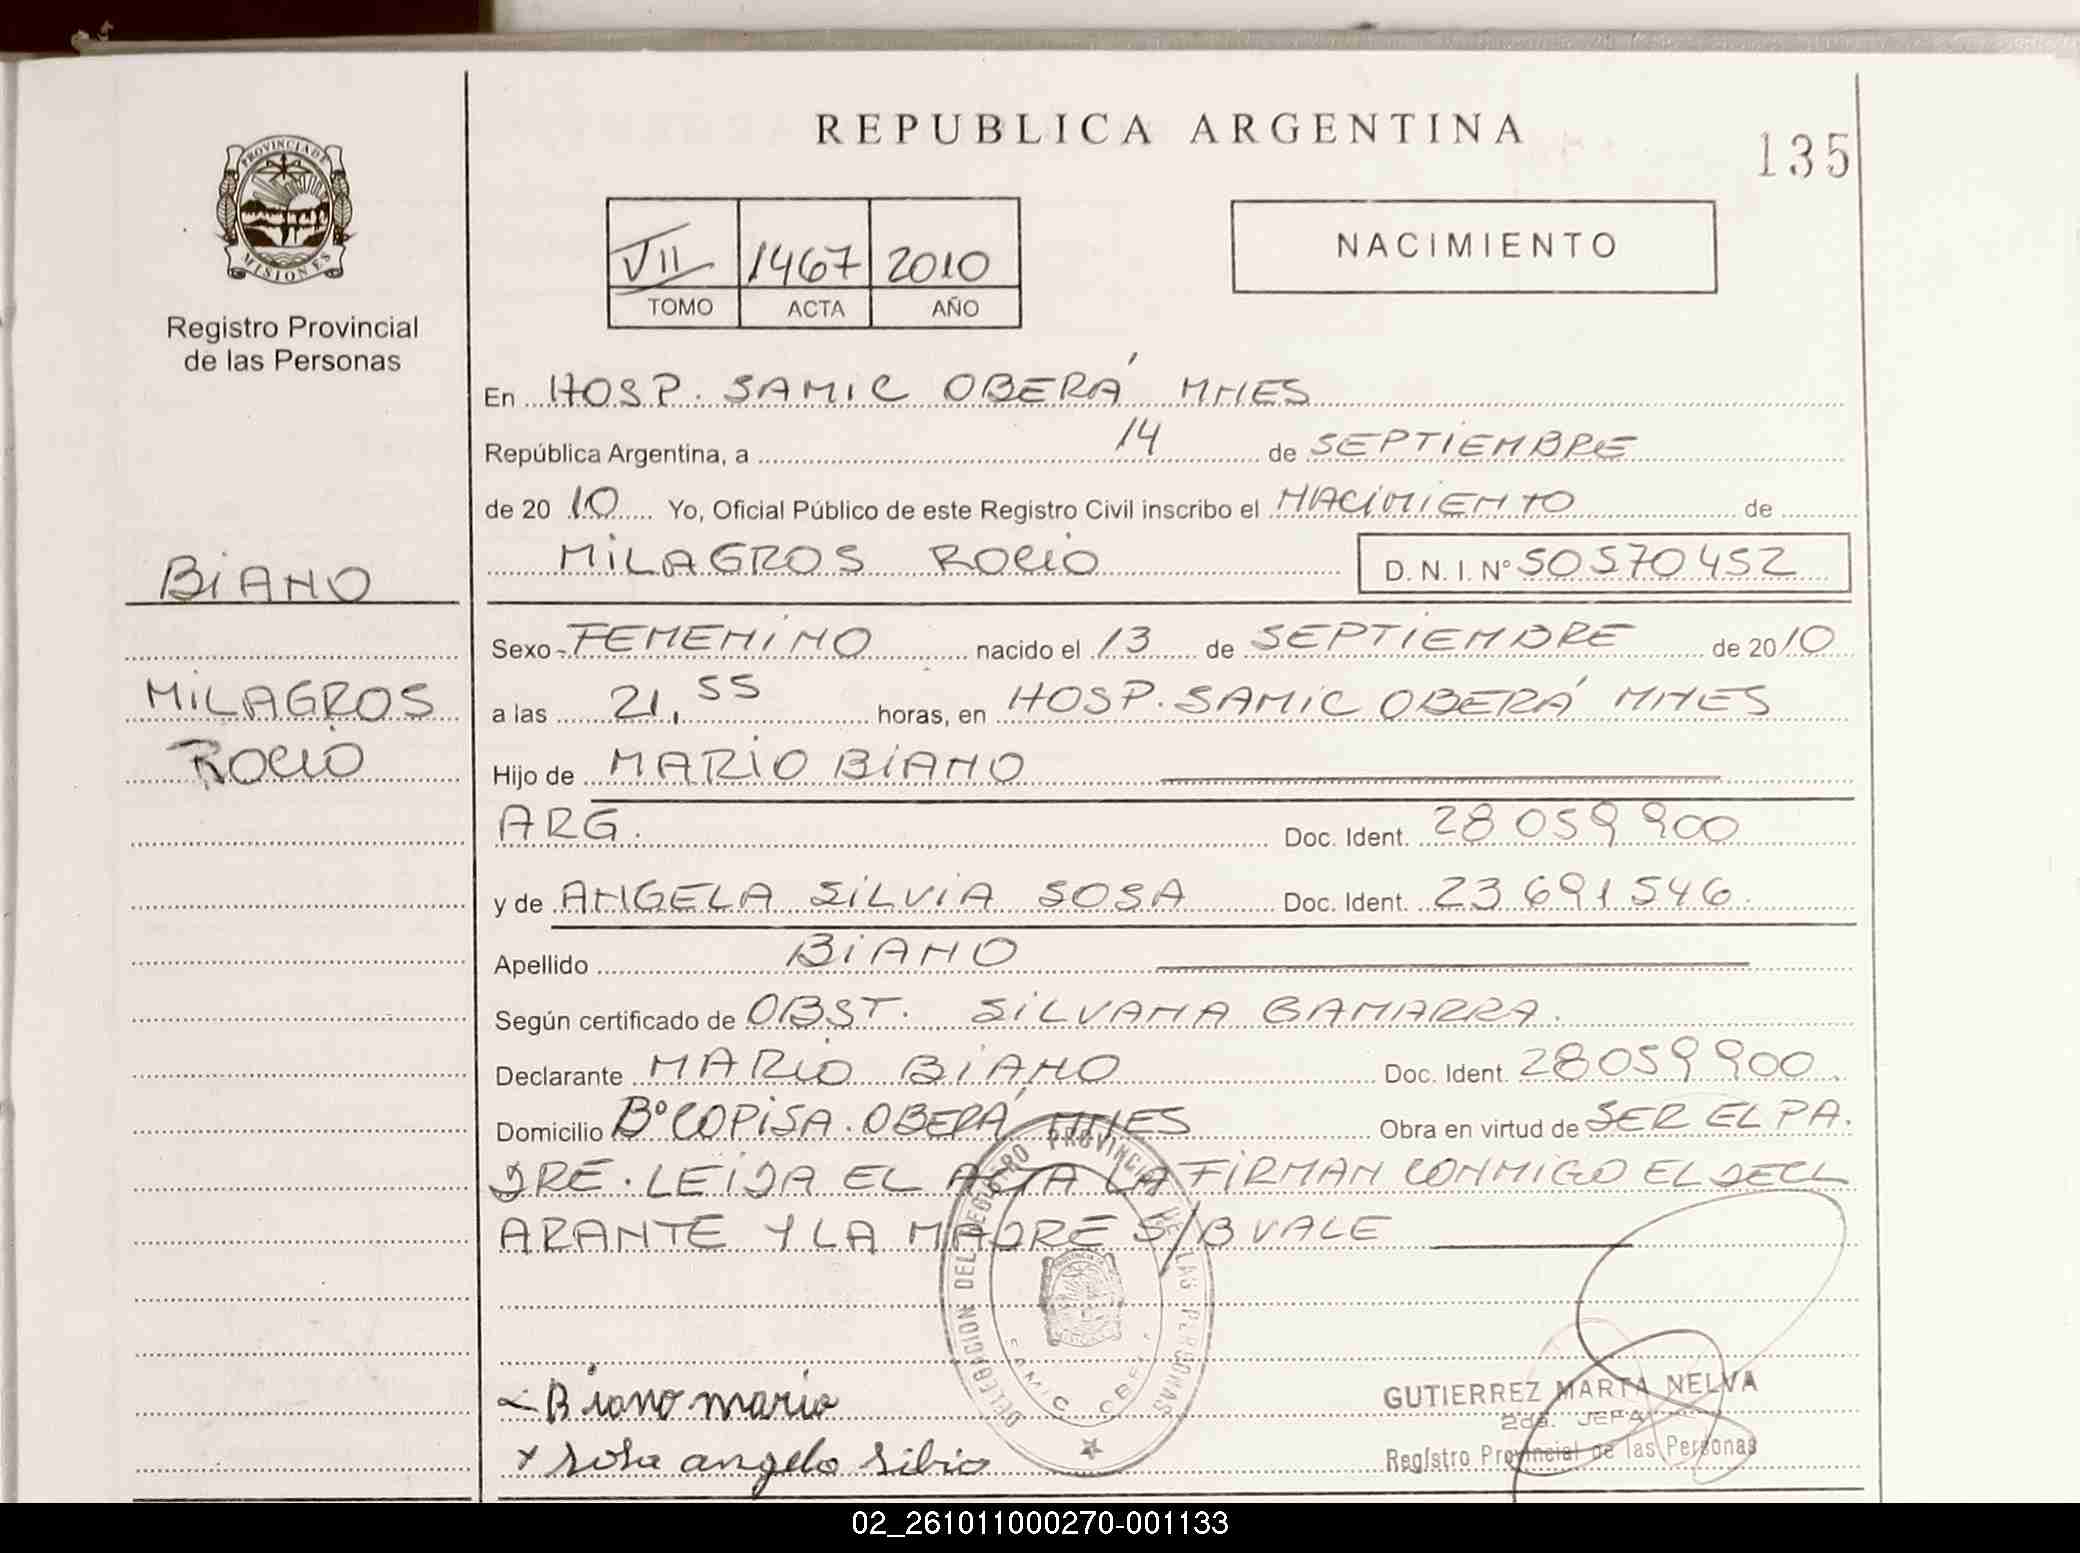 REPUBLICA ARGENTINA
135
PROVINCIA DE
MISIONES
Registro Provincial
de las Personas
VII 1467 2010
TOMO ACTA AÑO
NACIMIENTO
En HOSP. SAMIC OBERÁ MNES
República Argentina, a 14 de SEPTIEMBRE
de 20 10 Yo, Oficial Público de este Registro Civil inscribo el NACIMIENTO de
MILAGROS ROCIO D. N. I. N° 50570452
BIANO
MILAGROS
ROCIO
Sexo - FEMENINO nacido el 13 de SEPTIEMBRE de 2010
a las 21,55 horas, en HOSP. SAMIC OBERÁ MNES
Hijo de MARIO BIANO
ARG. Doc. Ident. 28 059 900
y de ANGELA SILVIA SOSA Doc. Ident. 23 691 546.
Apellido BIANO
Según certificado de OBST. SILVANA GAMARRA.
Declarante MARIO BIANO Doc. Ident. 28059900.
Domicilio B° COPISA. OBERÁ MNES Obra en virtud de SER EL PA.
DRE. LEIDA EL ACTA LA FIRMAN CONMIGO EL DECL
ARANTE Y LA MADRE S/B VALE
DELEGACION DEL REGISTRO PROVINCIAL DE LAS PERSONAS
SAMIC OBERA
Biano mario
x sosa angela silvia
GUTIERREZ MARTA NELVA
2da. JEFA
Registro Provincial de las Personas
02_261011000270-001133